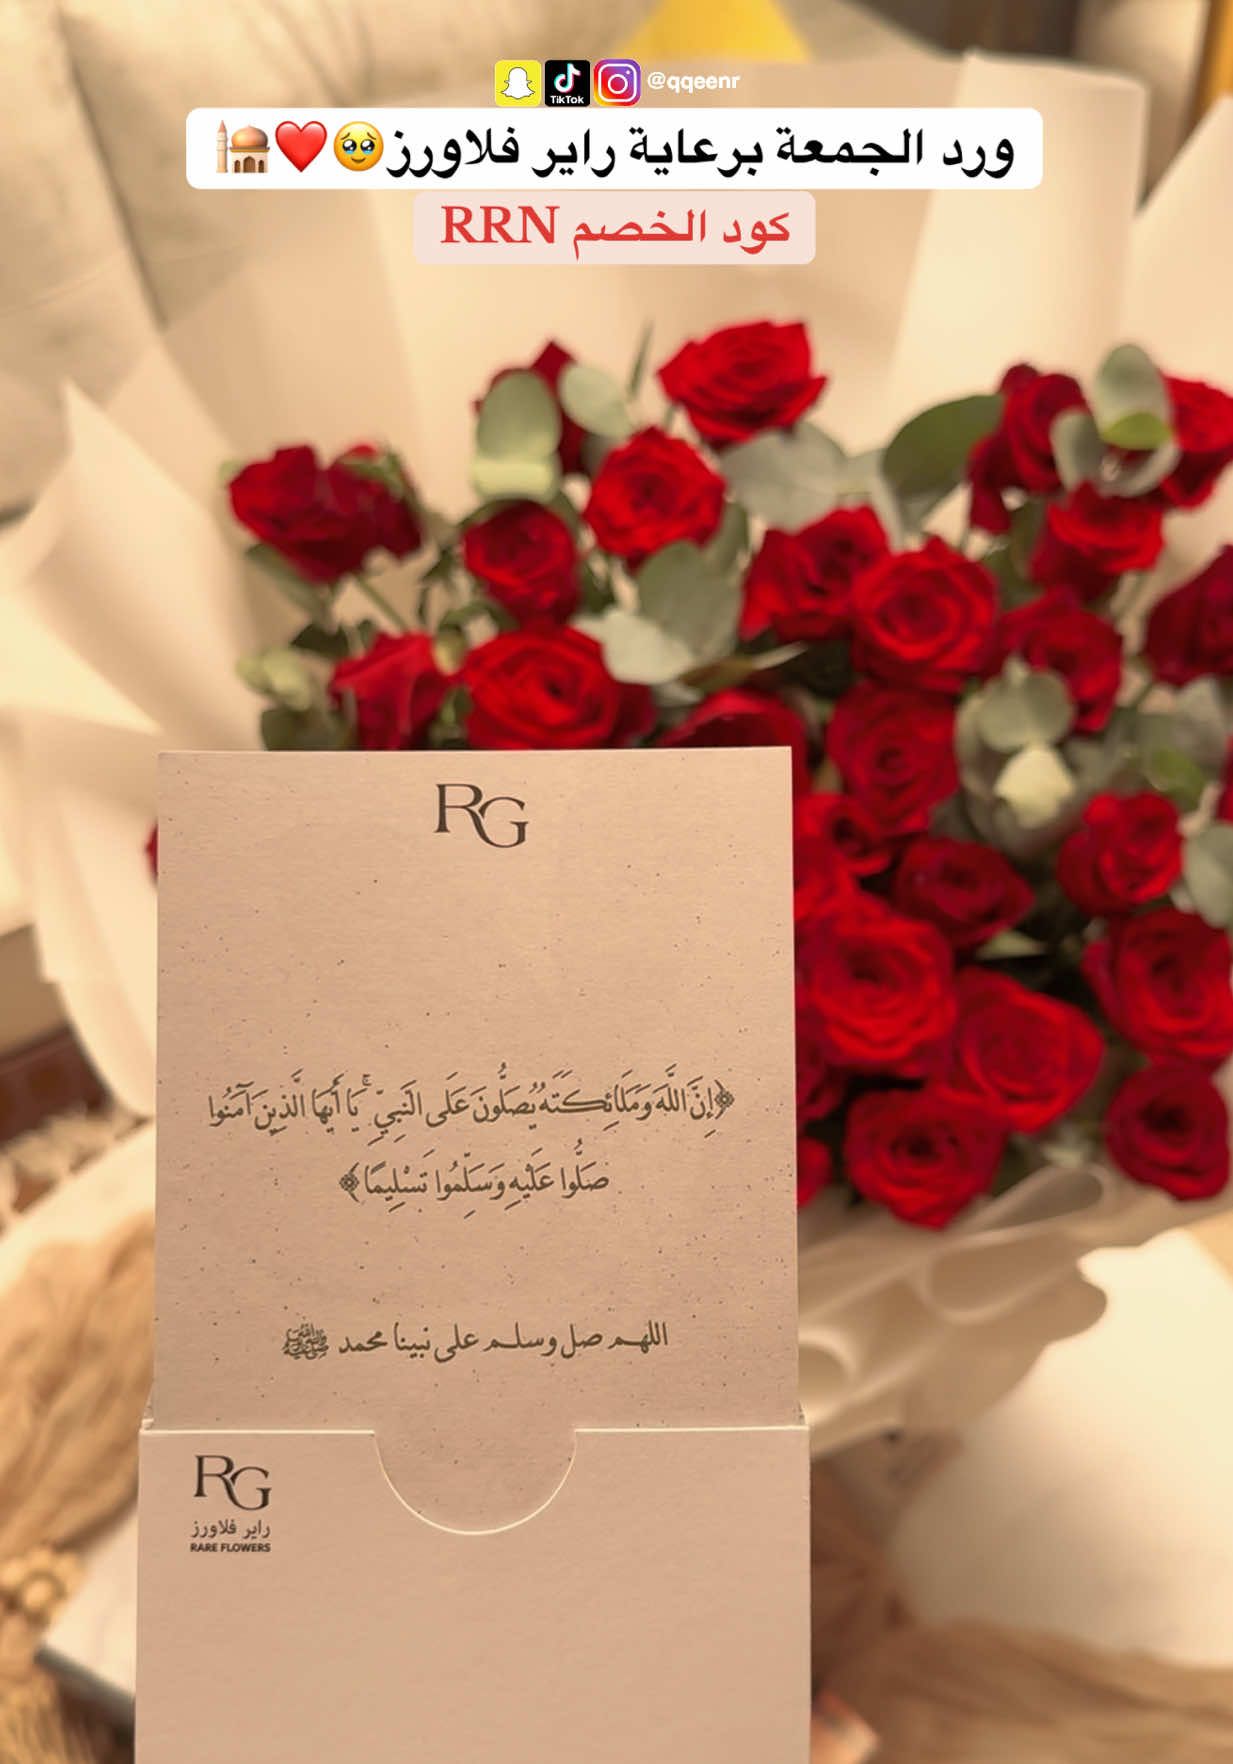 TikTok @qqeenr
ورد الجمعة برعاية راير فلاورز🥹❤️🕌
كود الخصم RRN
RG
﴿إِنَّ اللَّهَ وَمَلَائِكَتَهُ يُصَلُّونَ عَلَى النَّبِيِّ ۚ يَا أَيُّهَا الَّذِينَ آمَنُوا
صَلُّوا عَلَيْهِ وَسَلِّمُوا تَسْلِيمًا﴾
اللهم صل وسلم على نبينا محمد ﷺ
RG
راير فلاورز
RARE FLOWERS